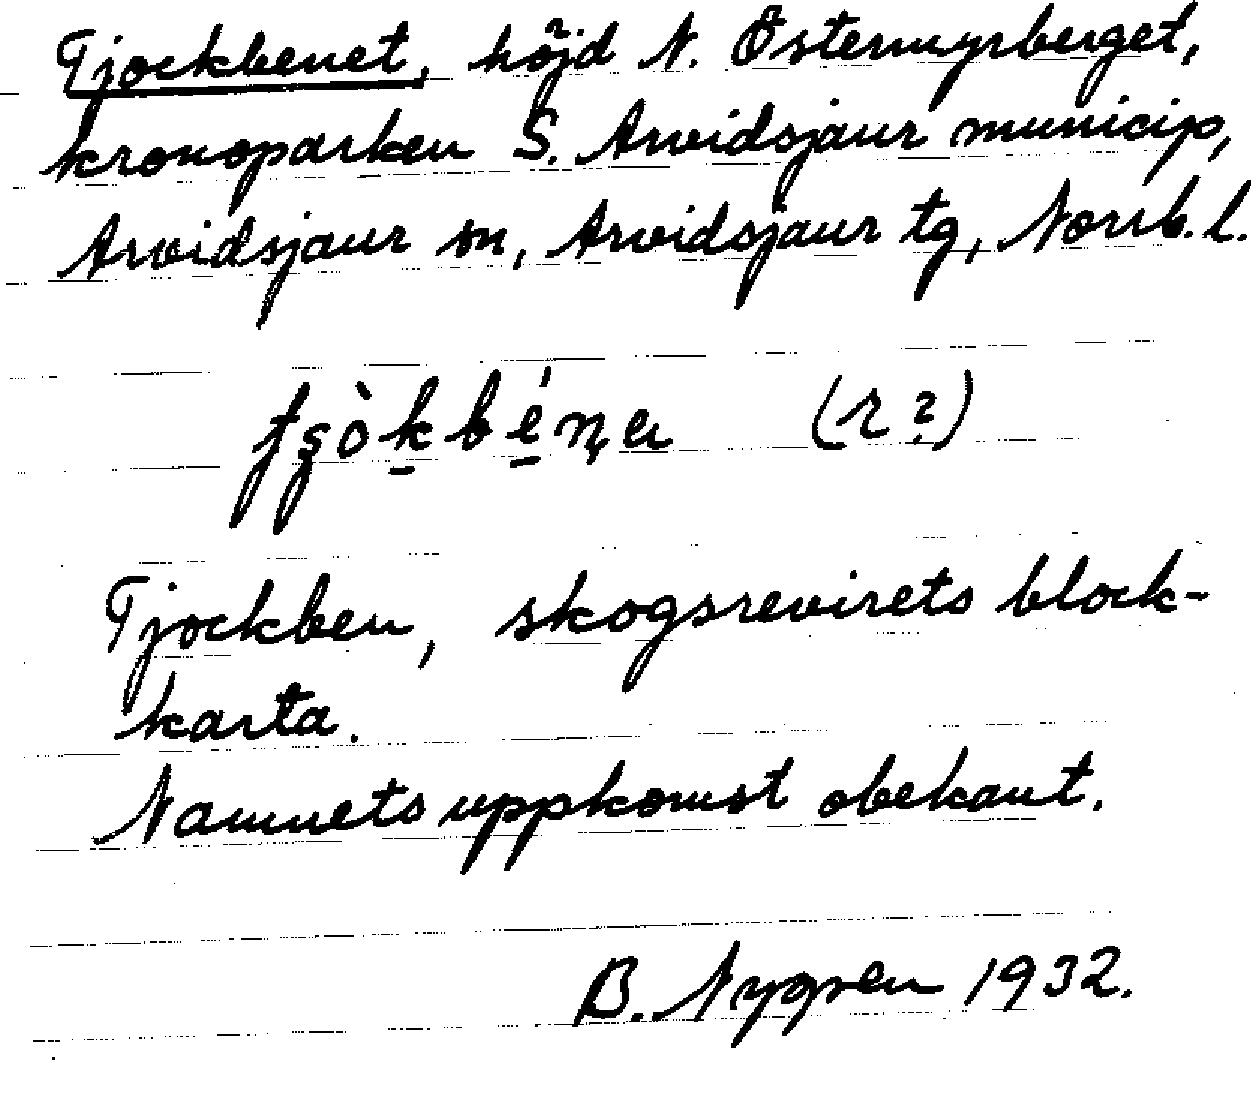 Tjockbenet, höjd N. Östermyrberget,
kronoparken S. Arvidsjaur municip,
Arvidsjaur sn, Arvidsjaur tg, Norrb. l.
(r?)
Tjockben, skogsrevirets block-
karta.
Namnets uppkomst obekant.
B. Nygren 1932.